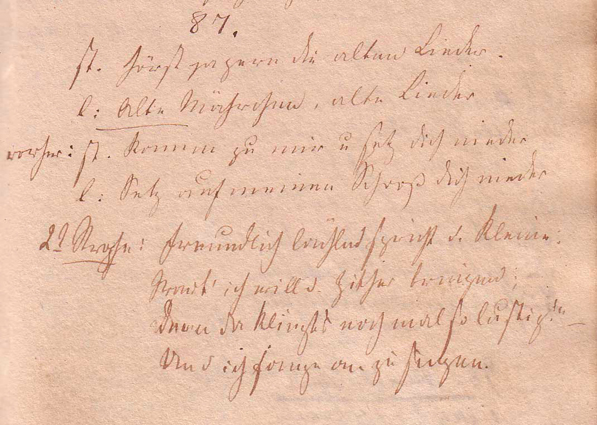 87.
st. Hörst so gern die alten Lieder.
l: Alte Mährchen, alte Lieder
vorher: st. Komm zu mir u setz dich nieder
l: Setz auf meinen Schooß dich nieder
2t Strophe: Freundlich lächelnd spricht d. Kleine:
ich will d. Zither bringen;
Denn da klingt's noch mal so lustig!"
Und ich fange an zu singen.